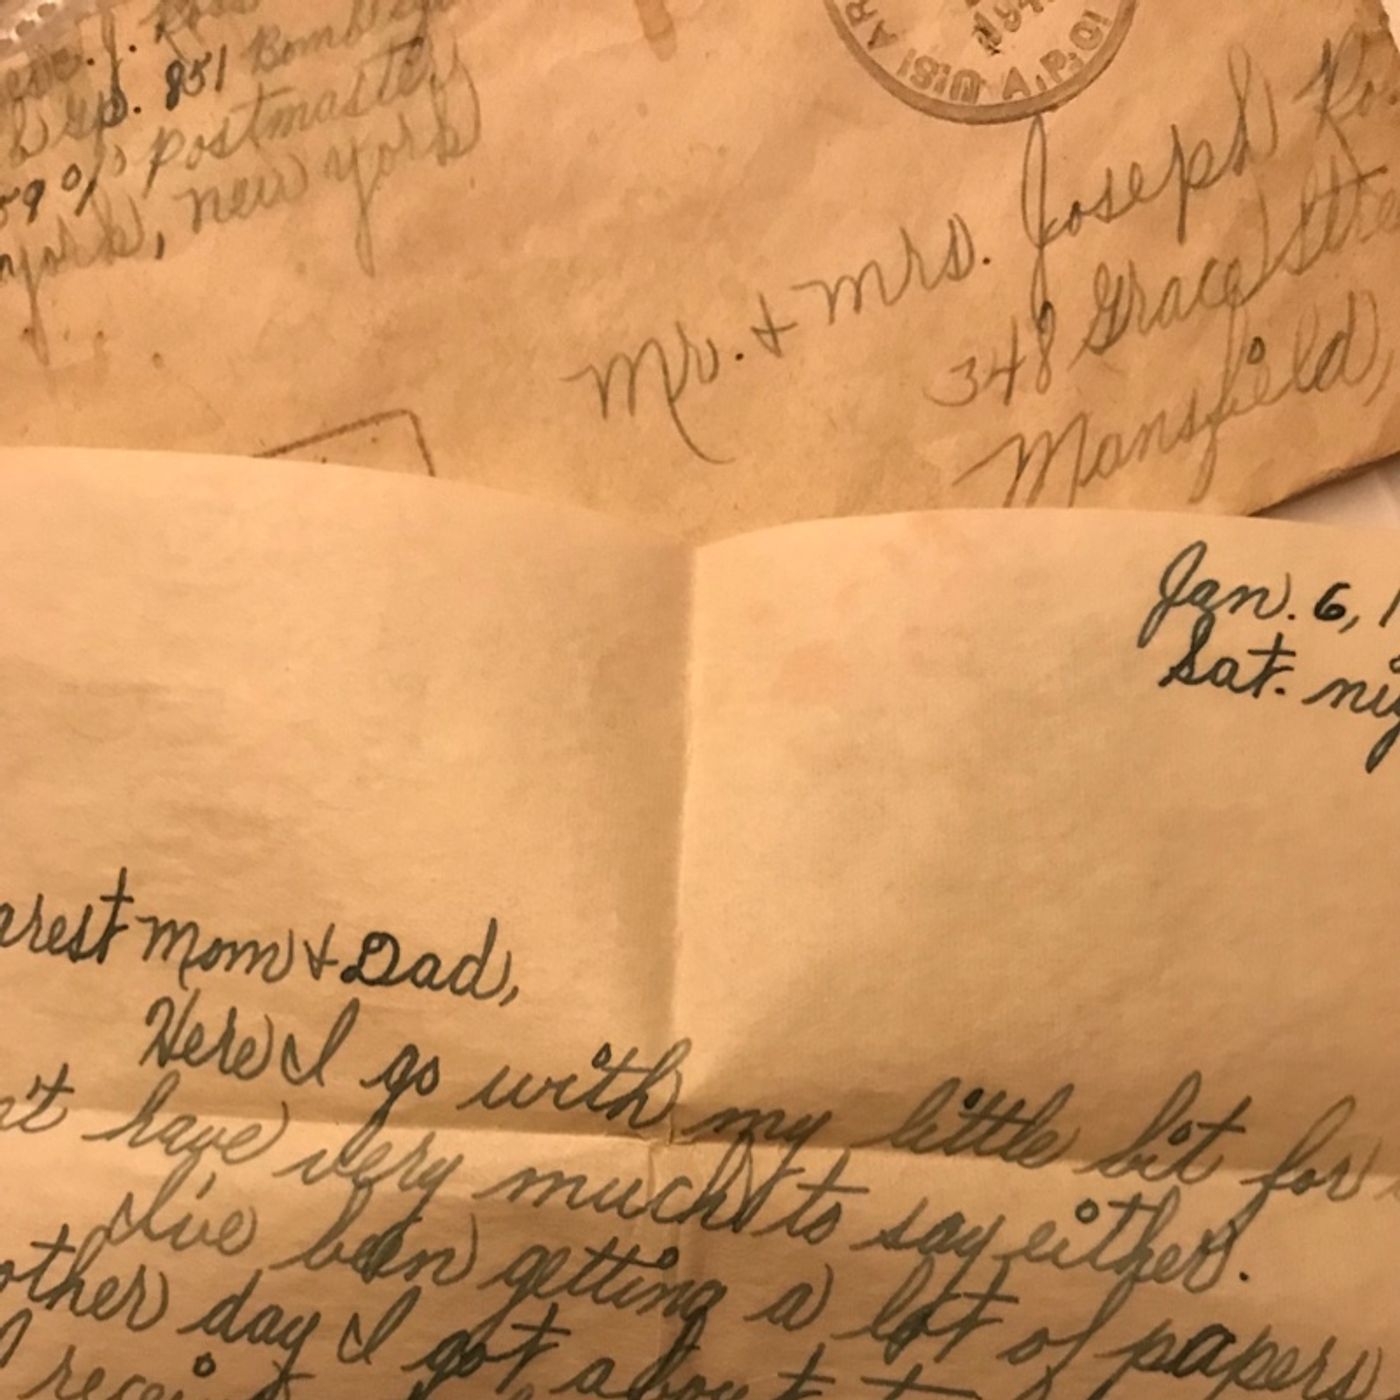 J. Ross
Gp. 851 Bomb
59 % Postmaster
York, New York
194
A.P.O.
Mr. & Mrs. Joseph
348 Grace
Mansfield,
Jan. 6, 1
Sat. nig
arest Mom & Dad,
Here I go with my little bit for
't have very much to say either.
I've been getting a lot of papers
other day I got about
I